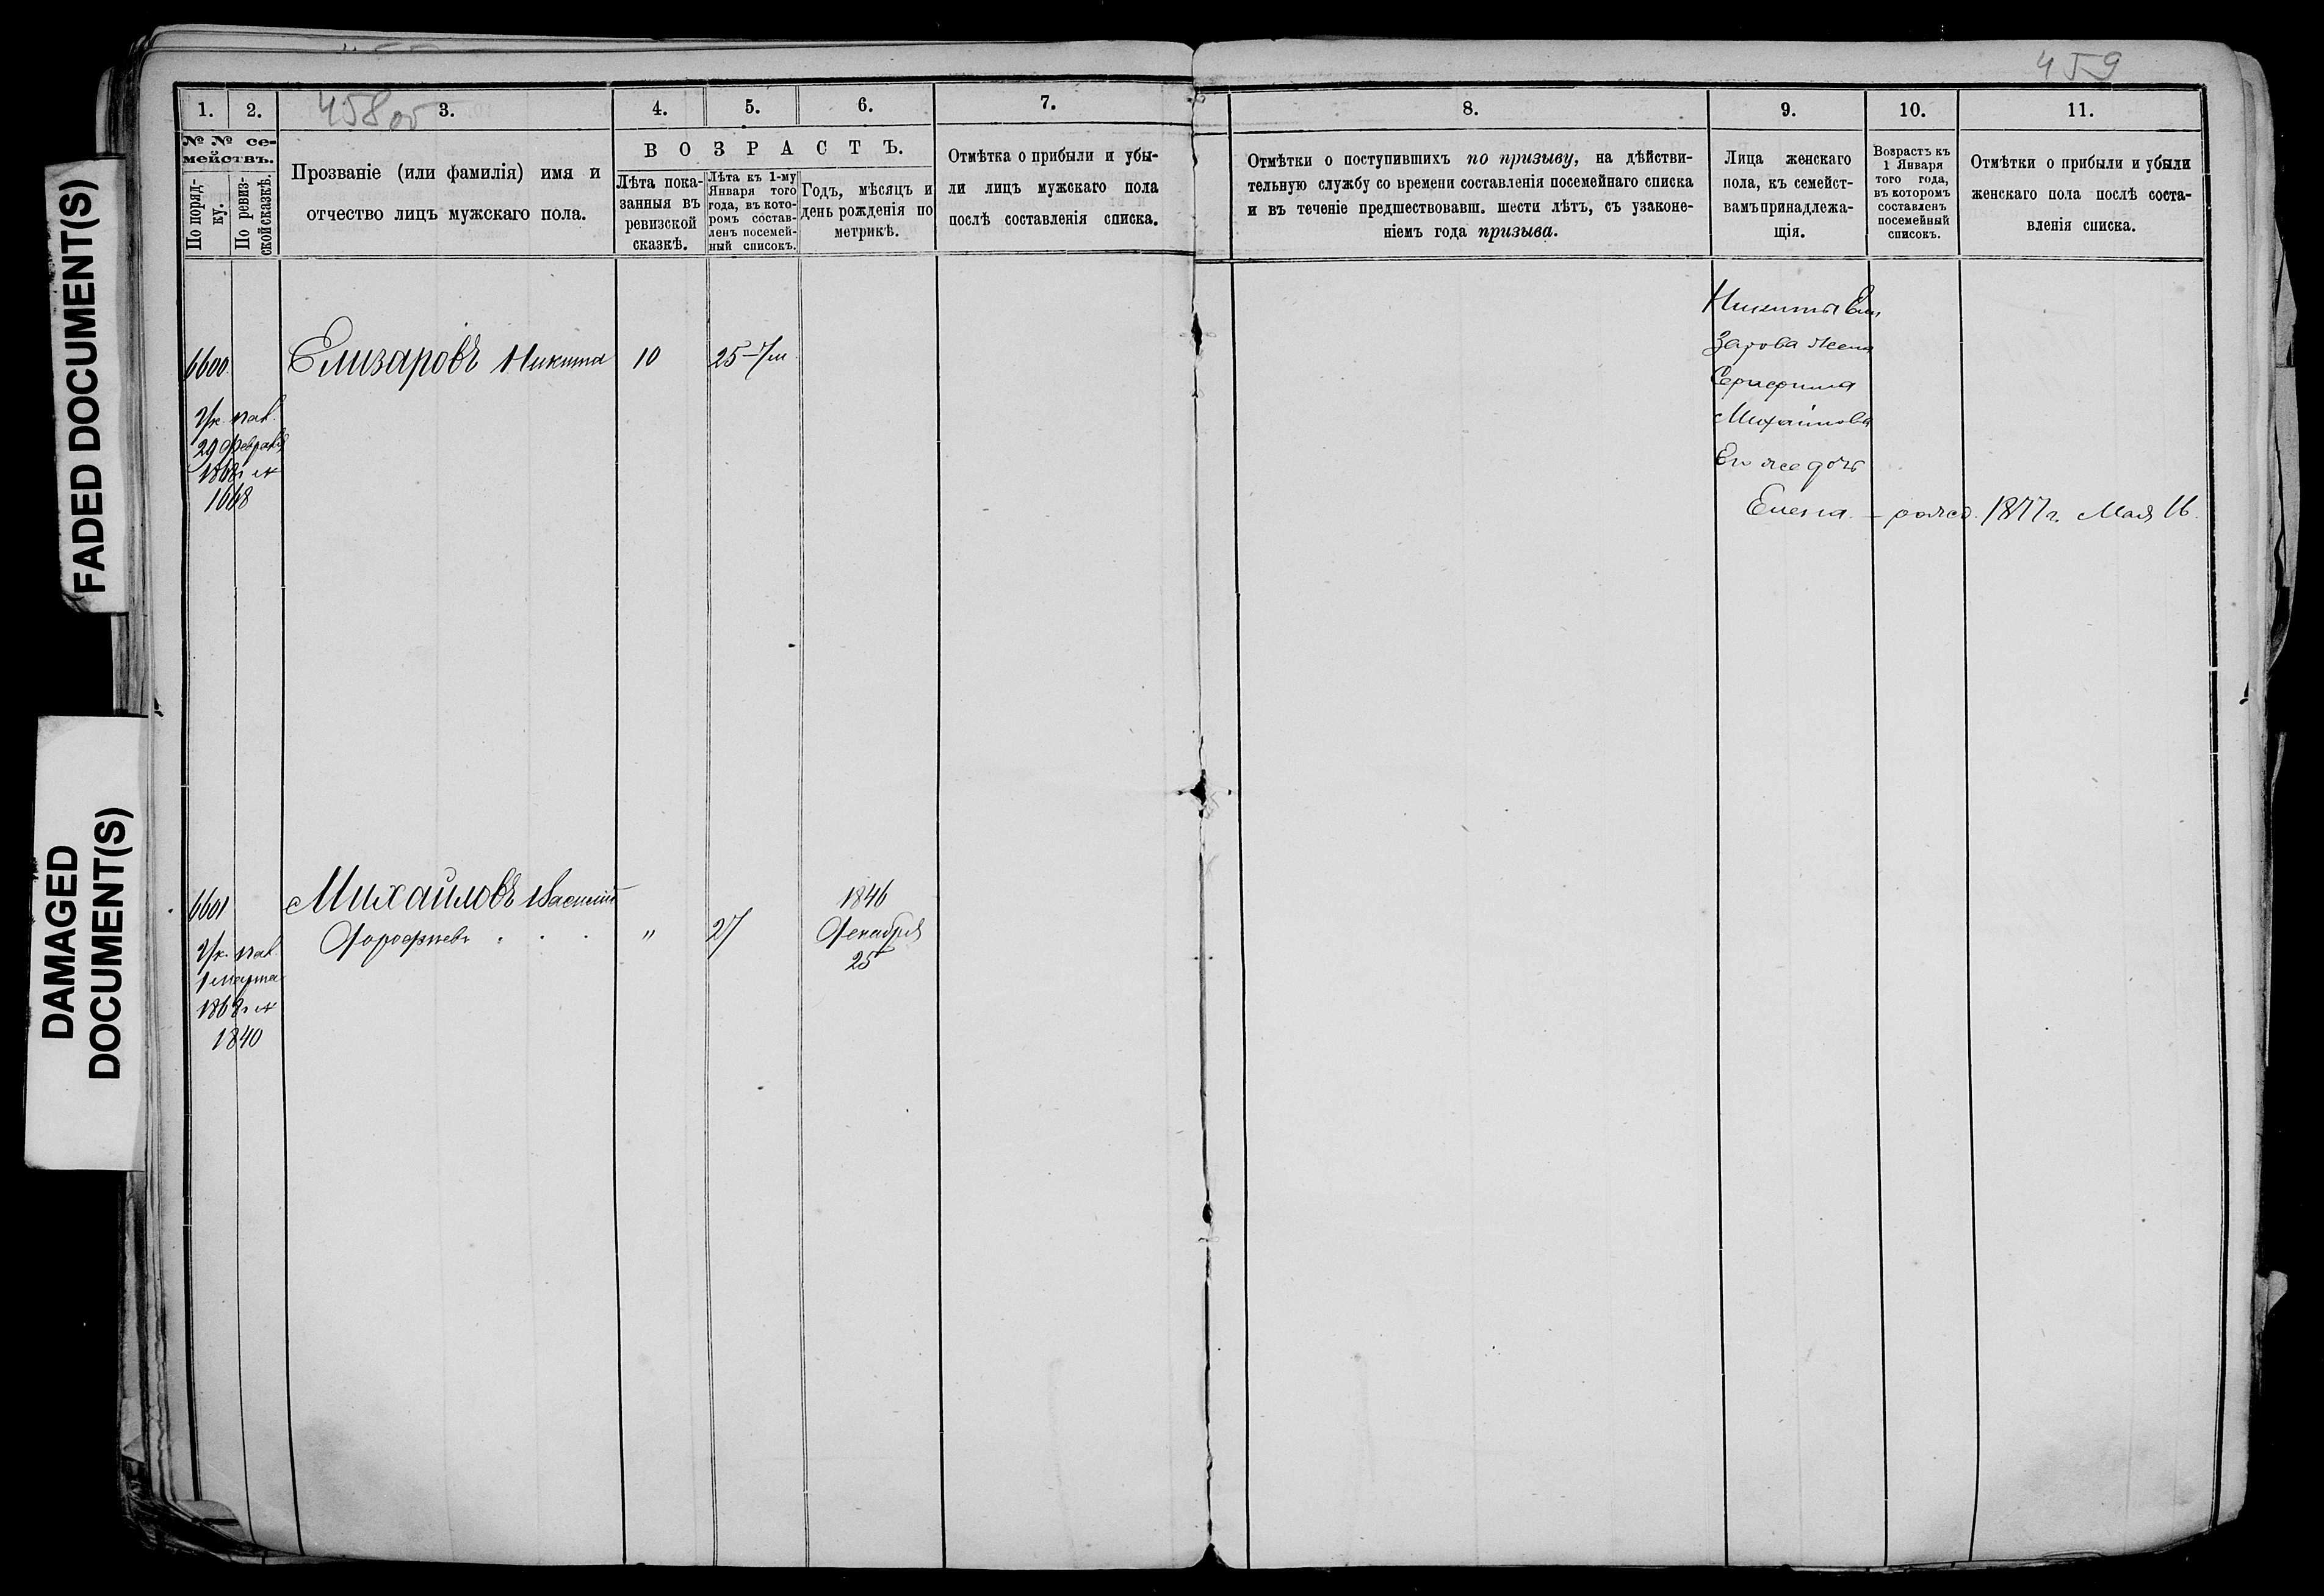 FADED DOCUMENT(S)
DAMAGED
DOCUMENT(S)
458 об
459
1.
2.
3.
4.
5.
6.
7.
8.
9.
10.
11.
№ № се-
мействъ.
По поряд-
ку.
По ревиз-
ской сказкѣ.
Прозваніе (или фамилія) имя и
отчество лицъ мужскаго пола.
ВОЗРАСТЪ.
Лѣта пока-
занныя въ
ревизской
сказкѣ.
Лѣта къ 1-му
Января того
года, въ кото-
ромъ состав-
ленъ посемей-
ный списокъ.
Годъ, мѣсяцъ и
день рожденія по
метрикѣ.
Отмѣтка о прибыли и убы-
ли лицъ мужскаго пола
послѣ составленія списка.
Отмѣтки о поступившихъ по призыву, на дѣйстви-
тельную службу со времени составленія посемейнаго списка
и въ теченіе предшествовавш. шести лѣтъ, съ узаконе-
ніемъ года призыва.
Лица женскаго
пола, къ семейст-
вамъ принадлежа-
щія.
Возрастъ къ
1 Января
того года,
въ которомъ
составленъ
посемейный
списокъ.
Отмѣтки о прибыли и убыли
женскаго пола послѣ соста-
вленія списка.
6600
Елизаровъ Никита
10
25
Ук. пал.
29 Февраля
1868 г. №
1668
Никиты Ели
зарова жена
Серафима
Михайлова
Его же дочь
Елена - рожд. 1877 г. Мая 16.
6601
Михайловъ Василій
Дорофѣевъ
"
27
1846
Декабря
25
Ук. пал.
1 марта
1868 г. №
1840